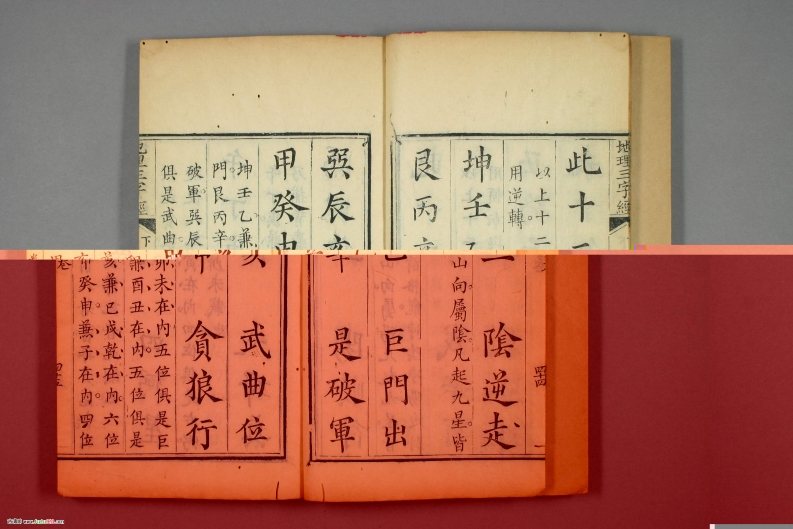 地理三字經
下
此十二 陰逆走
以上十二山向屬陰凡起九星皆
用逆轉
坤壬乙 巨門出
艮丙辛 是破軍
巽辰亥 武曲位
甲癸申 貪狼行
坤壬乙兼卯未在內五位俱是巨
門艮丙辛兼酉丑在內五位俱是
破軍巽辰亥兼巳戌乾在內六位
俱是武曲甲癸申兼子在內四位
地理三字經
下